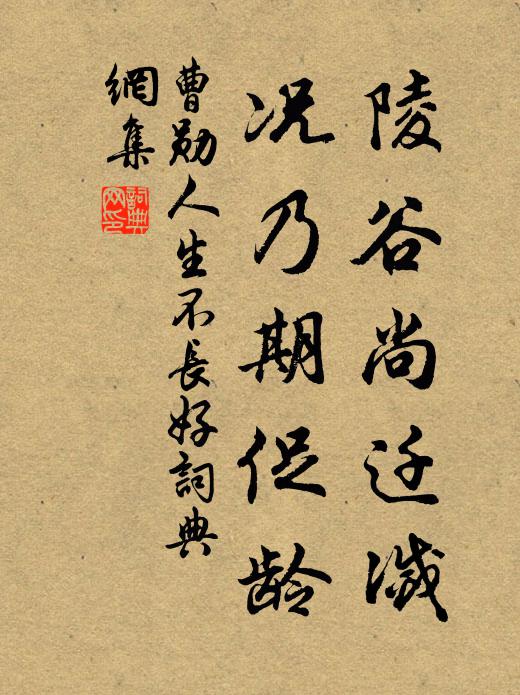 陵谷尚迁灭
况乃期促龄
曹勋人生不长好詞典
網集
詞典
网印